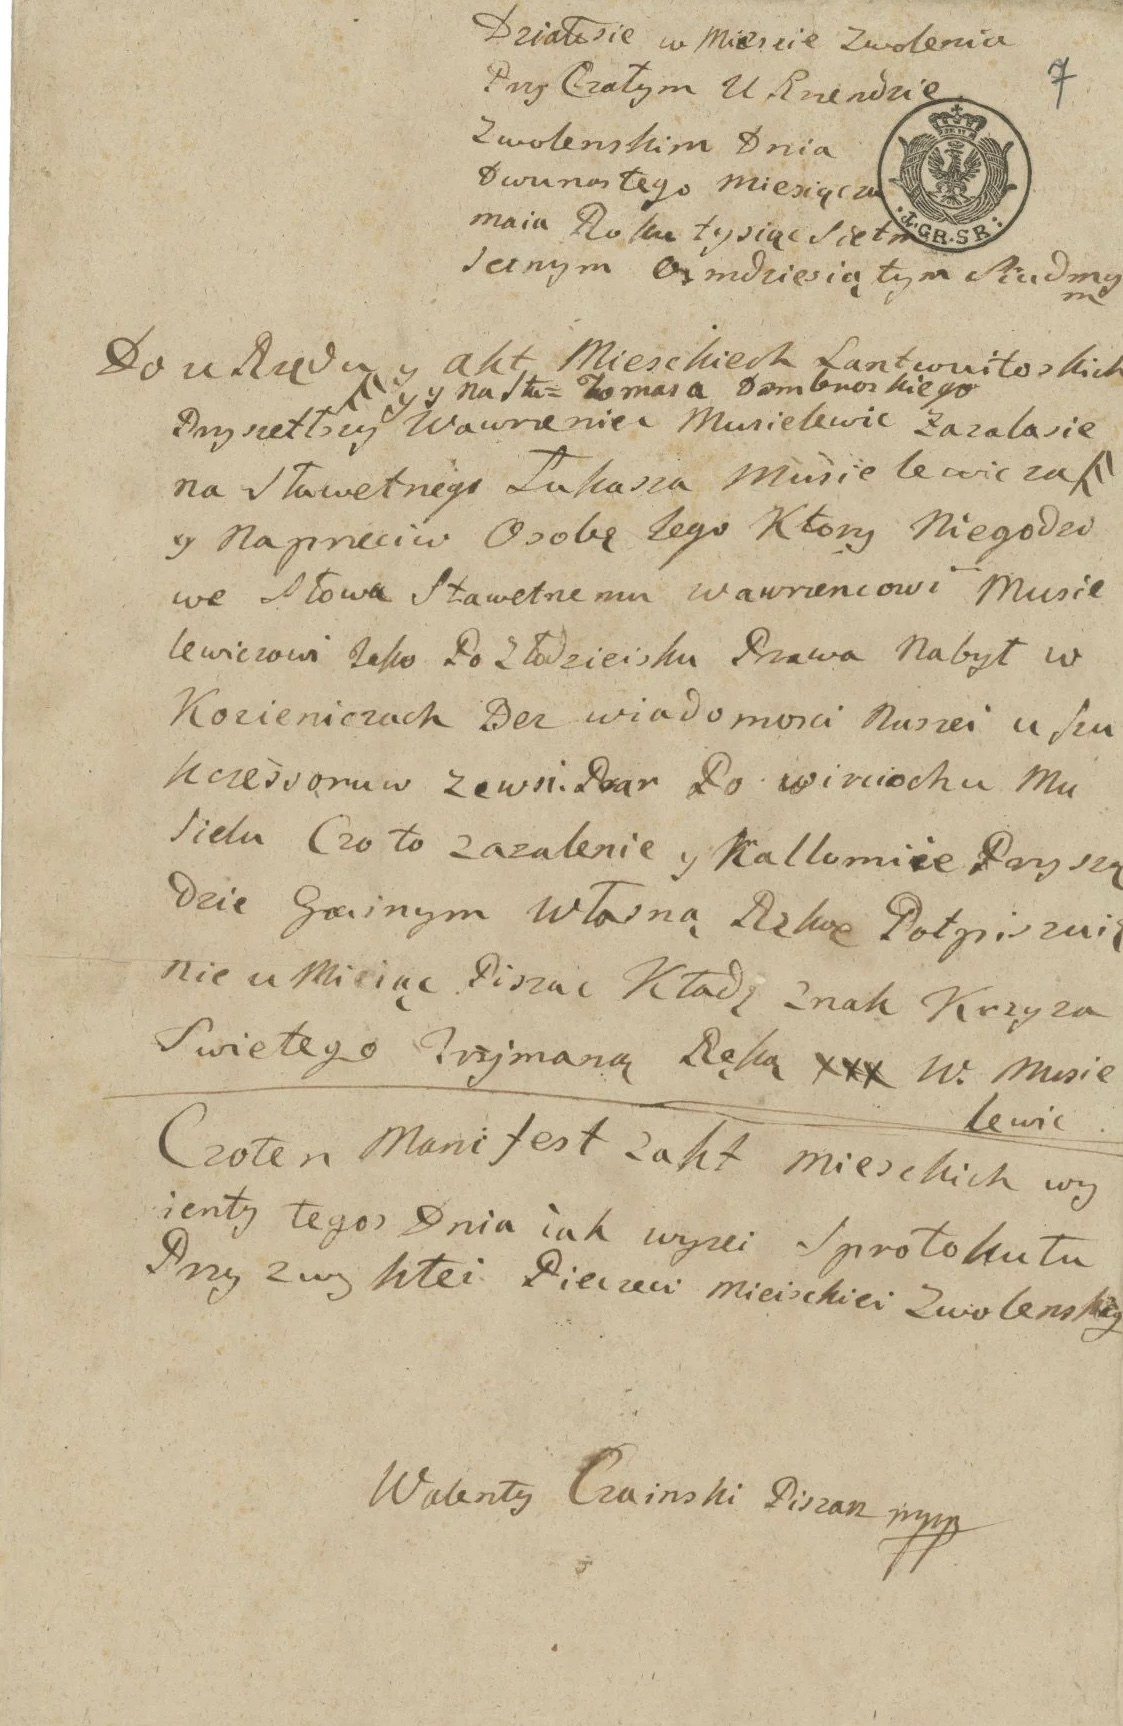 Działosie w Miescie Zwoleniu
7
Przy Czałym U Rzendzie
Zwolenskim Dnia
Dwunastego Miesiącza
4.GR.SR:
maia Roku tysiąc Sietm
Secnym Osmdziesiątym Siudmy
m
Do u Rzędu y akt Mieschiech Lantwuitoskich
y y na Sła= Tomasa Dombroskiego
Przyszetszy Wawrzeniec Musielewic Zazalasie
na Sławetnego Łukasza Musielewicza
y Naprzeciw Osobę tego Który Niegodzi
we Słowa Sławetnemu Wawrzencowi Musie
lewiczowi Jako Po Złodzieisku Prawa Nabył w
Kozieniczach Bez wiadomosci Naszei u Szu
kczessoruw Zewsi. Po wirciochu Mu
Sielu Czoto zazalenie y Kallumiie Przyszą
dzie Gainym Własną Rękę Potpiszuię
nie u Mieiąc Piszac Kładę znak Krzyza
Swietego Trzjmaną Ręką xxx W. Musie
lewic
Czoten Manifest zakt Mieschich wy
ienty tegos Dnia iak wyzei Sprotokułu
Przyzwykłei Pieczeci Mieischiei Zwolenskiey
Walenty Czainski Piszarz mpp